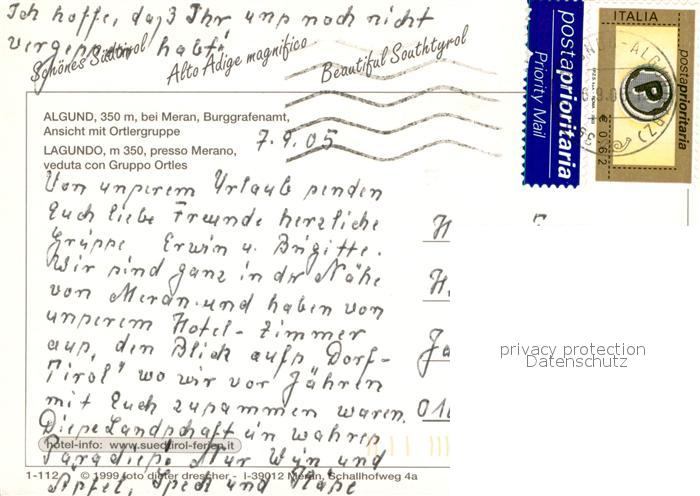 Ich hoffe, daß Ihr uns noch nicht
vergessen habt!
Schönes Südtirol
Alto Adige magnifico
Beautiful Southtyrol
postaprioritaria
Priority Mail
ITALIA
postaprioritaria
€ 0,62
P
ALGUND, 350 m, bei Meran, Burggrafenamt,
Ansicht mit Ortlergruppe
LAGUNDO, m 350, presso Merano,
veduta con Gruppo Ortles
7.9.05
Von unserem Urlaub senden
Euch liebe Freunde herzliche
Grüsse Erwin u. Brigitte.
Wir sind ganz in der Nähe
von Meran und haben von
unserem Hotel-Zimmer
aus, den Blick aufs Dorf-
Tirol" wo wir vor Jahren
mit Euch zusammen waren.
Diese Landschaft ein wahres
Paradies! Nur Wein und
Äpfel, Speck und Käse
H
H.
Ja
01
privacy protection
Datenschutz
hotel-info: www.suedtirol-ferien.it
1-112 © 1999 foto dieter drescher - I-39012 Meran, Schallhofweg 4a